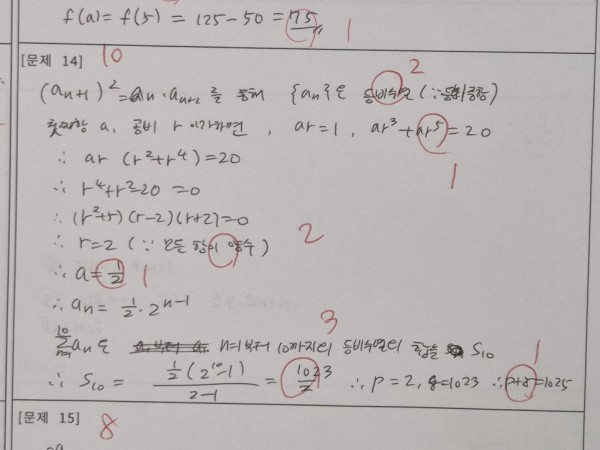 f(a) = f(5) = 125 - 50 = 75 1
[문제 14] 10
(aₙ₊₁)² = aₙ · aₙ₊₂ 를 통해 {aₙ}은 등비수열 (∵ 등비중항) 2
첫째항 a, 공비 r 이라하면, ar = 1, ar³ + ar⁵ = 20
∴ ar (r² + r⁴) = 20 1
∴ r⁴ + r² - 20 = 0
∴ (r² + 5)(r - 2)(r + 2) = 0
∴ r = 2 (∵ 모든 항이 양수) 2
∴ a = 1/2 1
∴ aₙ = 1/2 · 2ⁿ⁻¹
3
∑ₙ₌₁¹⁰ aₙ은 n=1부터 10까지의 등비수열의 합을 S₁₀
∴ S₁₀ = 1/2 (2¹⁰ - 1) / 2 - 1 = 1023/2 ∴ p = 2, q = 1023 ∴ p + q = 1025 1
[문제 15] 8